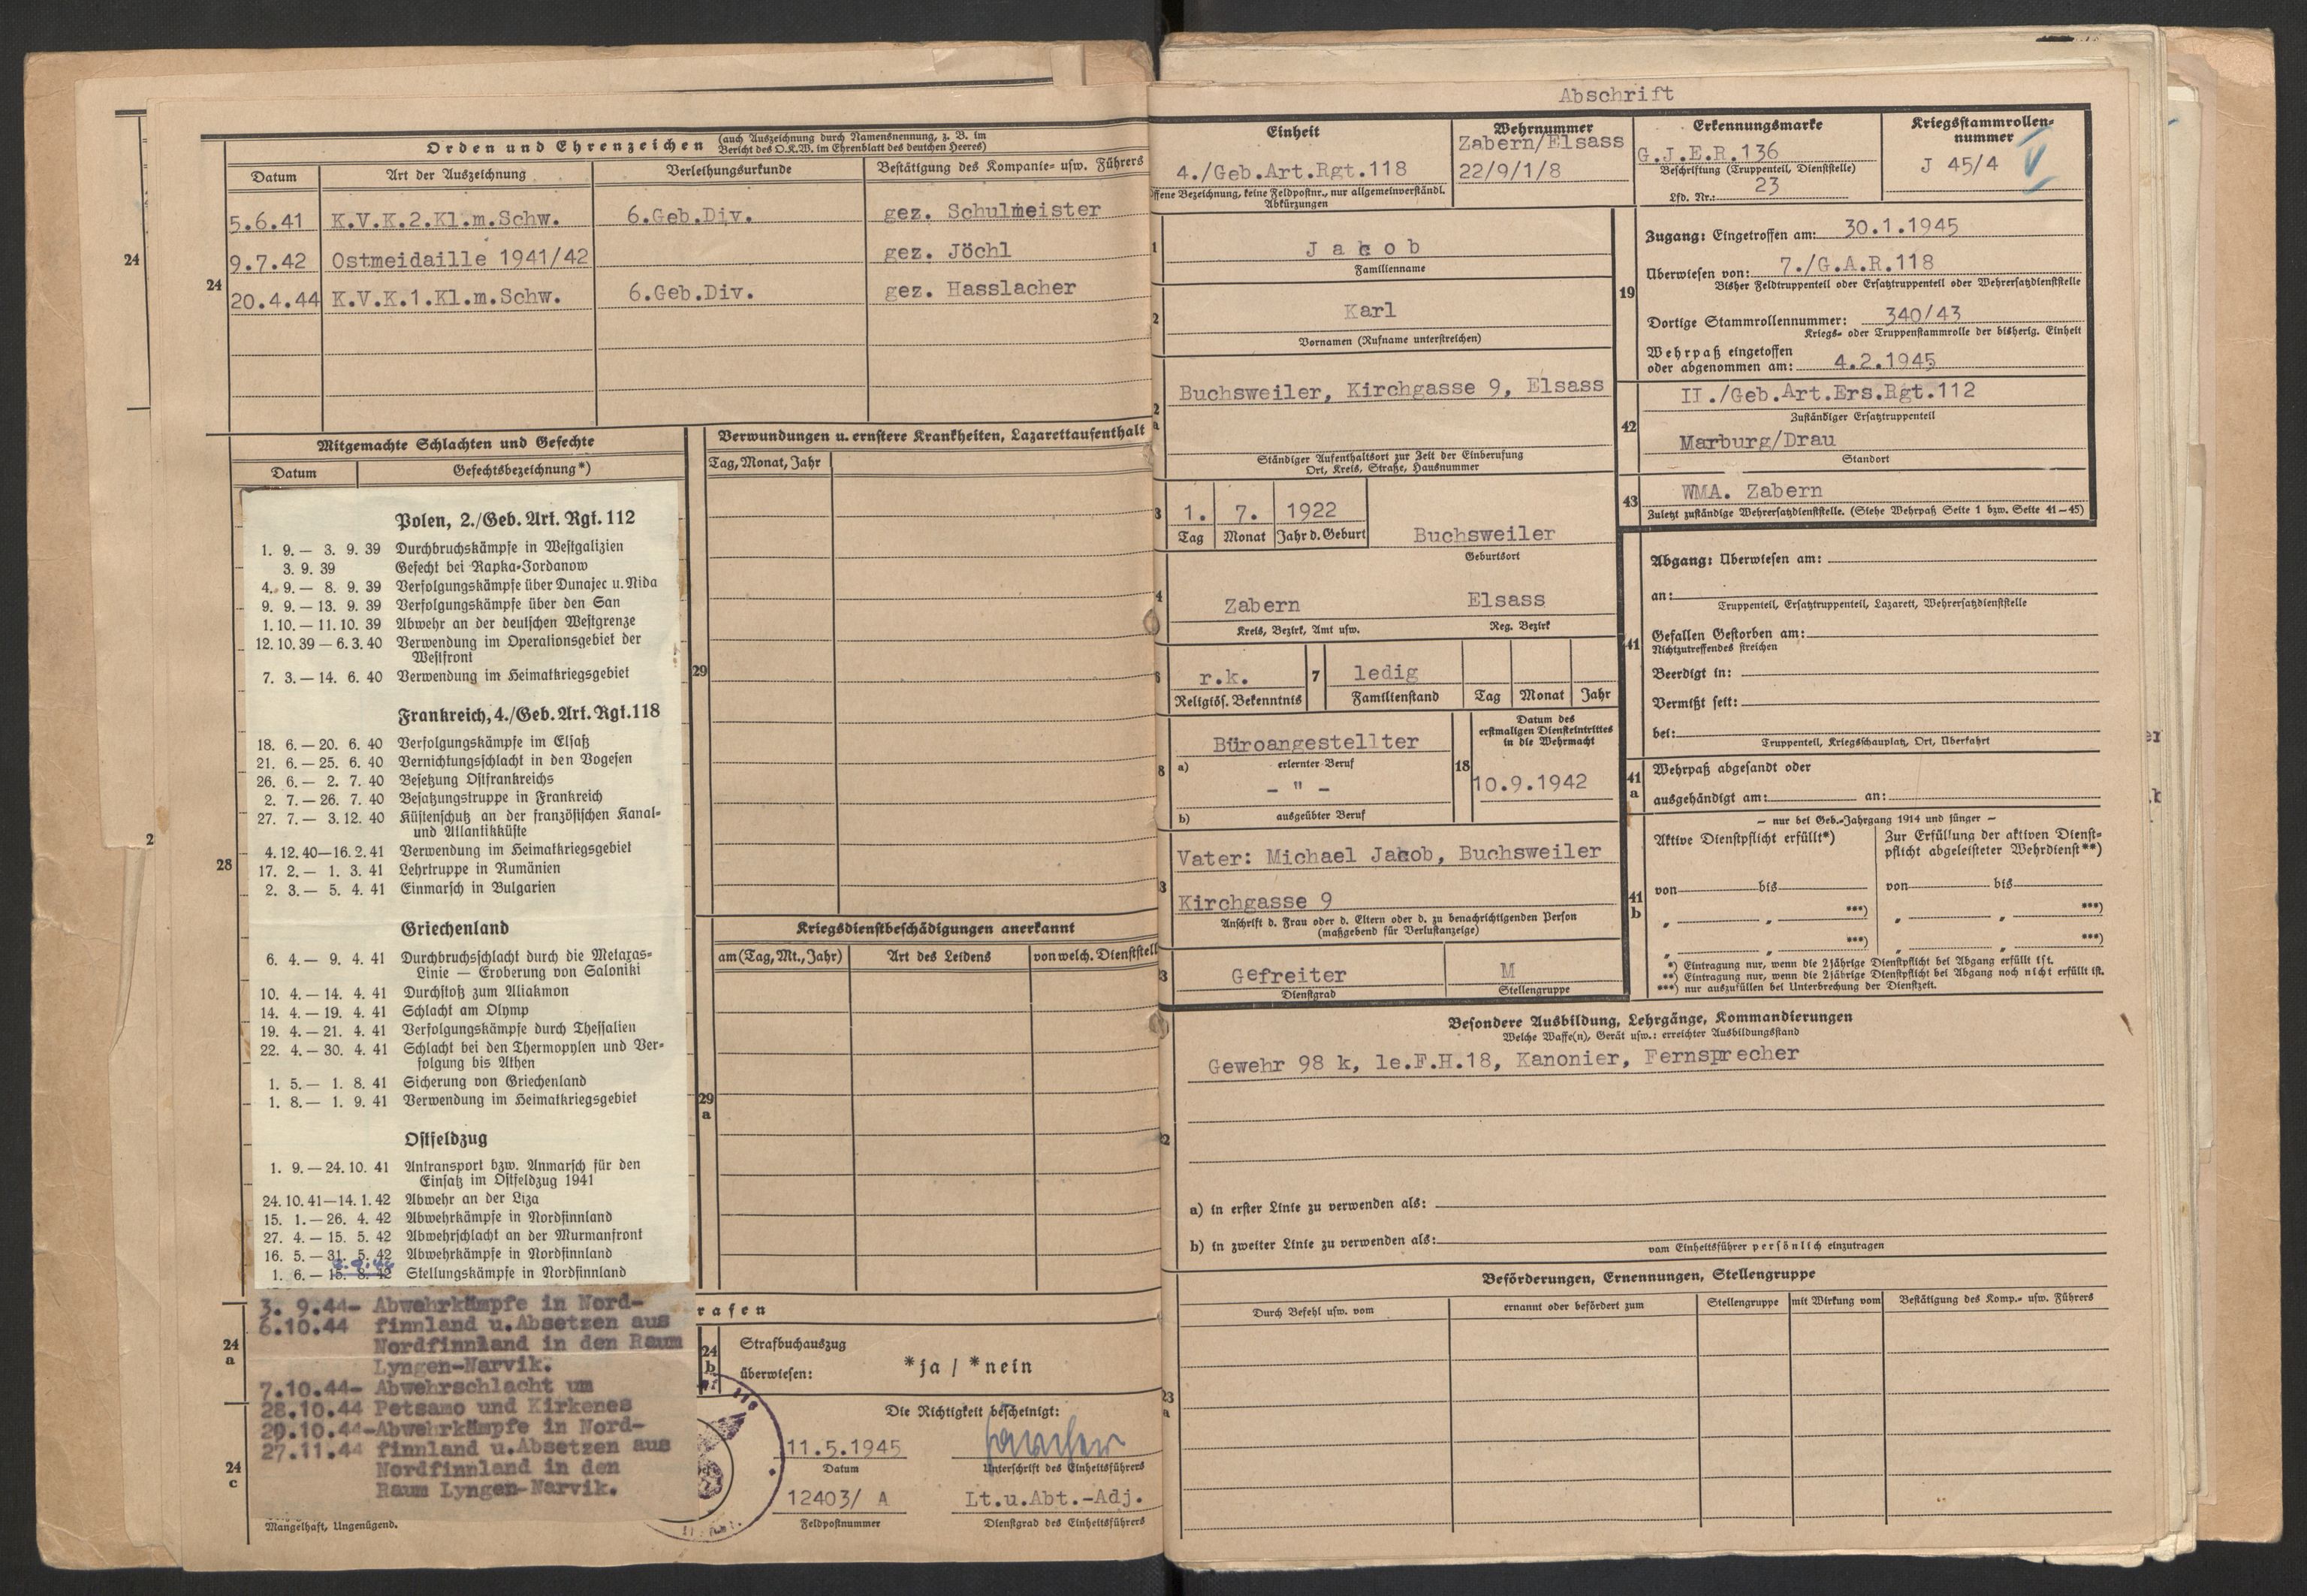 Orden und Ehrenzeichen (auch Auszeichnung durch Namensnennung, z. B. im
Bericht des O.K.W. im Ehrenblatt des deutschen Heeres)
Datum Art der Auszeichnung Verleihungsurkunde Bestätigung des Kompanie- usw. Führers
5.6.41 K.V.K.2.Kl.m.Schw. 6.Geb.Div. gez. Schulmeister
9.7.42 Ostmeidaille 1941/42 gez. Jöchl
20.4.44 K.V.K.1.Kl.m.Schw. 6.Geb.Div. gez. Hasslacher
24
24
Mitgemachte Schlachten und Gefechte
Datum Gefechtsbezeichnung*)
Polen, 2./Geb. Art. Rgt. 112
1. 9. — 3. 9. 39 Durchbruchskämpfe in Westgalizien
3. 9. 39 Gefecht bei Rapka-Jordanow
4. 9. — 8. 9. 39 Verfolgungskämpfe über Dunajec u. Nida
9. 9. — 13. 9. 39 Verfolgungskämpfe über den San
1. 10. — 11. 10. 39 Abwehr an der deutschen Westgrenze
12. 10. 39 — 6. 3. 40 Verwendung im Operationsgebiet der
Westfront
7. 3. — 14. 6. 40 Verwendung im Heimatkriegsgebiet
Frankreich, 4./Geb. Art. Rgt. 118
18. 6. — 20. 6. 40 Verfolgungskämpfe im Elsaß
21. 6. — 25. 6. 40 Vernichtungsschlacht in den Vogesen
26. 6. — 2. 7. 40 Besetzung Ostfrankreichs
2. 7. — 26. 7. 40 Besatzungstruppe in Frankreich
27. 7. — 3. 12. 40 Küstenschutz an der französischen Kanal-
und Atlantikküste
4. 12. 40 — 16. 2. 41 Verwendung im Heimatkriegsgebiet
17. 2. — 1. 3. 41 Lehrtruppe in Rumänien
2. 3. — 5. 4. 41 Einmarsch in Bulgarien
Griechenland
6. 4. — 9. 4. 41 Durchbruchsschlacht durch die Metaxas-
Linie — Eroberung von Saloniki
10. 4. — 14. 4. 41 Durchstoß zum Aliakmon
14. 4. — 19. 4. 41 Schlacht am Olymp
19. 4. — 21. 4. 41 Verfolgungskämpfe durch Thessalien
22. 4. — 30. 4. 41 Schlacht bei den Thermopylen und Ver-
folgung bis Athen
1. 5. — 1. 8. 41 Sicherung von Griechenland
1. 8. — 1. 9. 41 Verwendung im Heimatkriegsgebiet
Ostfeldzug
1. 9. — 24. 10. 41 Antransport bzw. Anmarsch für den
Einsatz im Ostfeldzug 1941
24. 10. 41 — 14. 1. 42 Abwehr an der Liza
15. 1. — 26. 4. 42 Abwehrkämpfe in Nordfinnland
27. 4. — 15. 5. 42 Abwehrschlacht an der Murmanfront
16. 5. — 31. 5. 42 Abwehrkämpfe in Nordfinnland
1. 6. — 15. 8. 42 Stellungskämpfe in Nordfinnland
3. 9.44- Abwehrkämpfe in Nord-
6.10.44 finnland u.Absetzen aus
Nordfinnland in den Raum
Lyngen-Narvik.
7.10.44- Abwehrschlacht um
28.10.44 Petsamo und Kirkenes
29.10.44-Abwehrkämpfe in Nord-
27.11.44 finnland u.Absetzen aus
Nordfinnland in den
Raum Lyngen-Narvik.
Mangelhaft, Ungenügend.
2
28
24
a
24
c
Verwundungen u. ernstere Krankheiten, Lazarettaufenthalt
Tag, Monat, Jahr
29
Kriegsdienstbeschädigungen anerkannt
am (Tag, Mt., Jahr) Art des Leidens von welch. Dienststell
29
a
rafen
24
b
Strafbuchauszug
überwiesen: *ja / *nein
Die Richtigkeit bescheinigt:
11.5.1945
Datum Unterschrift des Einheitsführers
12403/ A Lt.u.Abt.-Adj.
Feldpostnummer Dienstgrad des Einheitsführers
Abschrift
Einheit Wehrnummer Erkennungsmarke Kriegsstammrollen-
nummer
4./Geb.Art.Rgt.118 Zabern/Elsass G.J.E.R.136 J 45/4 V
22/9/1/8 Beschriftung (Truppenteil, Dienststelle)
Offene Bezeichnung, keine Feldpostnr., nur allgemeinverständl.
Abkürzungen
23
Lfd. Nr.:
1 Jacob
Familienname
2 Karl
Vornamen (Rufname unterstreichen)
2
a
Buchsweiler, Kirchgasse 9, Elsass
Ständiger Aufenthaltsort zur Zeit der Einberufung
Ort, Kreis, Straße, Hausnummer
3 1. 7. 1922 Buchsweiler
Tag Monat Jahr d. Geburt Geburtsort
4 Zabern Elsass
Kreis, Bezirk, Amt usw. Reg. Bezirk
6 r.k. 7 ledig
Religiös. Bekenntnis Familienstand Tag Monat Jahr
8 a) Büroangestellter
erlernter Beruf
- " -
b) ausgeübter Beruf
18 Datum des
erstmaligen Diensteintrittes
in die Wehrmacht
10.9.1942
3 Vater: Michael Jacob, Buchsweiler
Kirchgasse 9
Anschrift d. Frau oder d. Eltern oder d. zu benachrichtigenden Person
(maßgebend für Verlustanzeige)
3 Gefreiter M
Dienstgrad Stellengruppe
19 Zugang: Eingetroffen am: 30.1.1945
Überwiesen von: 7./G.A.R.118
Bisher Feldtruppenteil oder Ersatztruppenteil oder Wehrersatzdienststelle
Dortige Stammrollennummer: 340/43
Kriegs- oder Truppenstammrolle der bisherig. Einheit
Wehrpaß eingetoffen
oder abgenommen am: 4.2.1945
42 II./Geb.Art.Ers.Rgt.112
Zuständiger Ersatztruppenteil
Marburg/Drau
Standort
43 WMA. Zabern
Zuletzt zuständige Wehrersatzdienststelle. (Siehe Wehrpaß Seite 1 bzw. Seite 41—45)
41 Abgang: Überwiesen am:
an:
Truppenteil, Ersatztruppenteil, Lazarett, Wehrersatzdienststelle
Gefallen Gestorben am:
Nichtzutreffendes streichen
Beerdigt in:
Vermißt seit:
bei:
Truppenteil, Kriegsschauplatz, Ort, Überfahrt
41
a
Wehrpaß abgesandt oder
ausgehändigt am: an:
— nur bei Geb.-Jahrgang 1914 und jünger —
Aktive Dienstpflicht erfüllt*) Zur Erfüllung der aktiven Dienst-
pflicht abgeleisteter Wehrdienst**)
41
b
von bis von bis
" " ***) " " ***)
" " ***) " " ***)
*) Eintragung nur, wenn die 2jährige Dienstpflicht bei Abgang erfüllt ist.
**) Eintragung nur, wenn die 2jährige Dienstpflicht bei Abgang noch nicht erfüllt ist.
***) nur auszufüllen bei Unterbrechung der Dienstzeit.
Besondere Ausbildung, Lehrgänge, Kommandierungen
Welche Waffe(n), Gerät usw.: erreichter Ausbildungsstand
Gewehr 98 k, le.F.H.18, Kanonier, Fernsprecher
a) in erster Linie zu verwenden als:
b) in zweiter Linie zu verwenden als:
vom Einheitsführer persönlich einzutragen
Beförderungen, Ernennungen, Stellengruppe
Durch Befehl usw. vom ernannt oder befördert zum Stellengruppe mit Wirkung vom Bestätigung des Komp.- usw. Führers
23
a